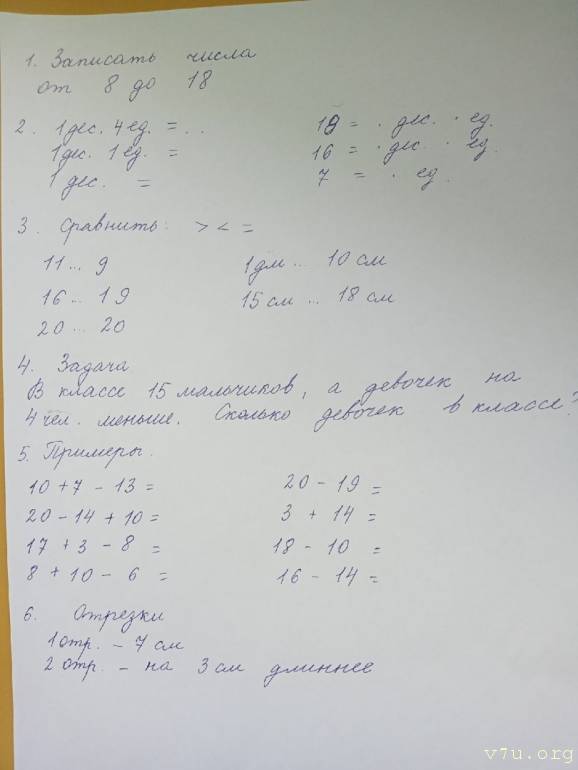 1. Записать числа
от 8 до 18
2. 1 дес. 4 ед. = . .
1 дес. 1 ед. =
1 дес. =
19 = . дес. . ед.
16 = . дес. . ед.
7 = . ед.
3. Сравнить: > < =
11 ... 9
16 ... 19
20 ... 20
1 дм ... 10 см
15 см ... 18 см
4. Задача
В классе 15 мальчиков, а девочек на
4 чел. меньше. Сколько девочек в классе?
5. Примеры.
10 + 7 - 13 =
20 - 14 + 10 =
17 + 3 - 8 =
8 + 10 - 6 =
20 - 19 =
3 + 14 =
18 - 10 =
16 - 14 =
6. Отрезки
1 отр. - 7 см
2 отр. - на 3 см длиннее
v7u.org